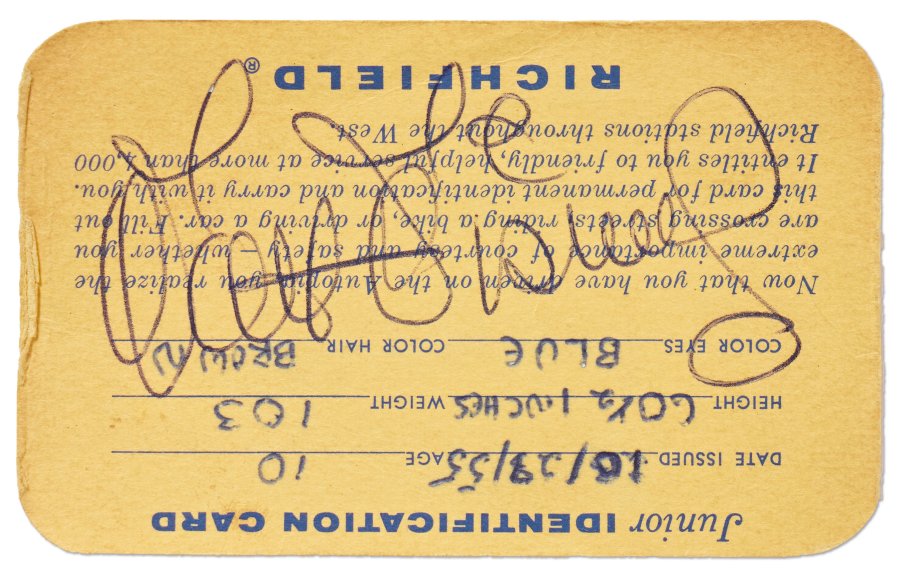 Junior IDENTIFICATION CARD
DATE ISSUED 10/29/55 AGE 10
HEIGHT 60½ INCHES WEIGHT 103
COLOR EYES BLUE COLOR HAIR BROWN
Now that you have driven on the Autopia you realize the
extreme importance of courtesy and safety — whether you
are crossing streets, riding a bike, or driving a car. Fill out
this card for permanent identification and carry it with you.
It entitles you to friendly, helpful service at more than 4,000
Richfield stations throughout the West.
RICHFIELD®
Walt Disney